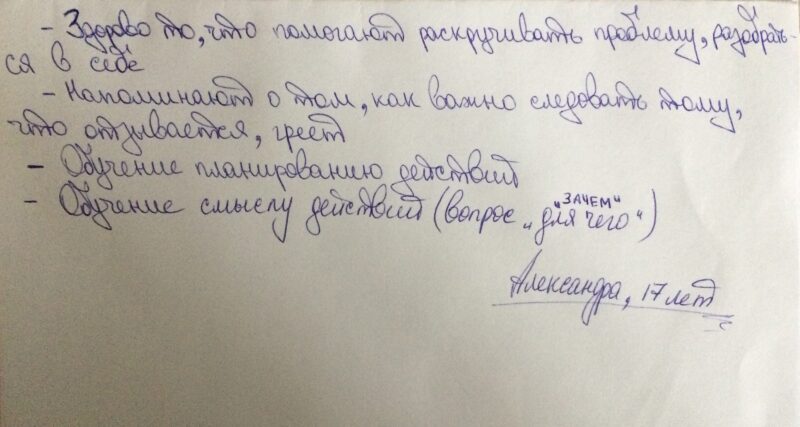 - Здорово то, что помогают раскручивать проблему, разобрать-
ся в себе
- Напоминают о том, как важно следовать тому,
что отзывается, греет
- Обучение планированию действий
- Обучение смыслу действий (вопрос „для чего“ „ЗАЧЕМ“)
Александра, 17 лет